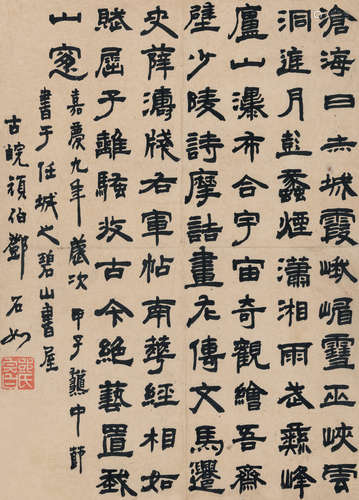 滄海日赤城霞峨嵋雪巫峽雲
洞庭月彭蠡煙瀟湘雨武彝峰
廬山瀑布合宇宙奇觀繪吾齋
壁少陵詩摩詰畫左傳文馬遷
史薛濤牋右軍帖南華經相如
賦屈子離騷收古今絕藝置我
山窗
嘉慶九年歲次甲子龝中節
書于任城之碧山書屋
古皖頑伯鄧石如